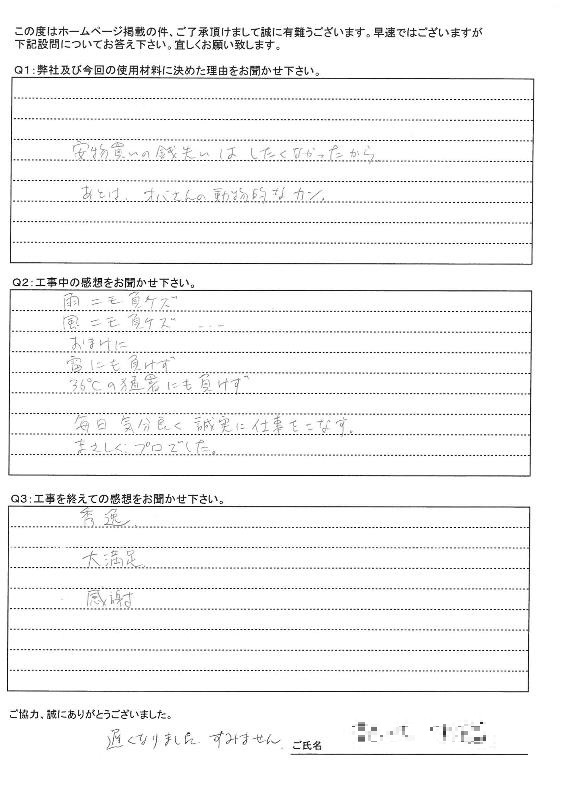 この度はホームページ掲載の件、ご了承頂けまして誠に有難うございます。早速ではございますが
下記設問についてお答え下さい。宜しくお願い致します。
Q1：弊社及び今回の使用材料に決めた理由をお聞かせ下さい。
安物買いの銭失いは したくなかったから
あとは、オバさんの動物的なカン。
Q2：工事中の感想をお聞かせ下さい。
雨ニモ負ケズ
風ニモ負ケズ ...
おまけに
雷にも負けず
36℃の猛暑にも負けず
毎日 気分良く 誠実に 仕事をこなす。
まさしく プロでした。
Q3：工事を終えての感想をお聞かせ下さい。
秀逸
大満足
感謝
ご協力、誠にありがとうございました。
遅くなりました すみません
ご氏名